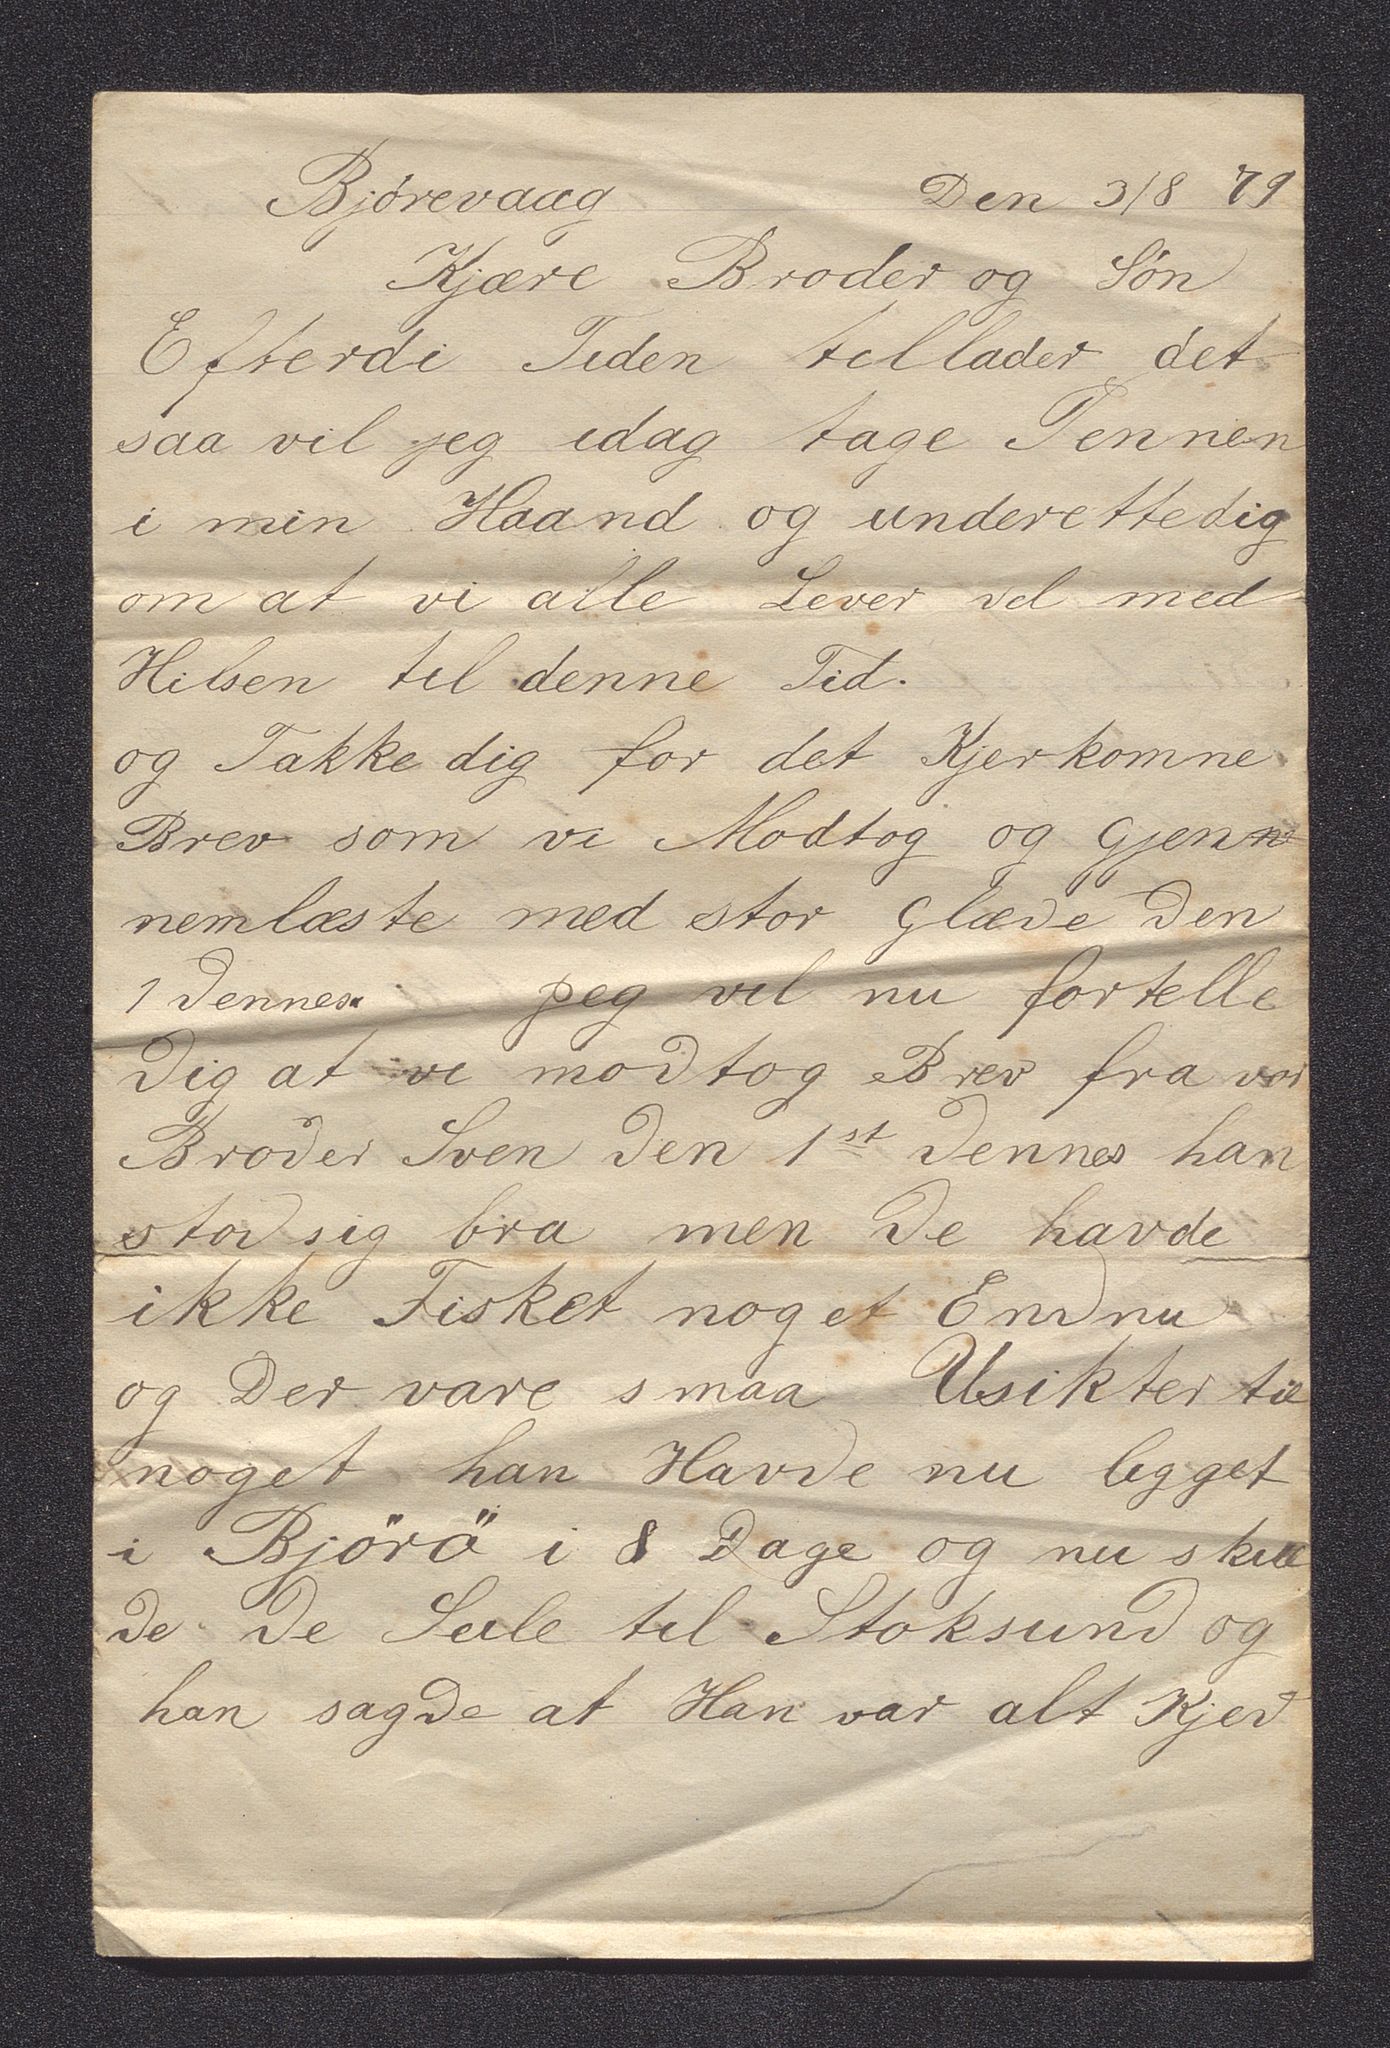 Bjørevaag Den 3/8 79
Kjære Broder og Søn
Efterdi Tiden tillader det
saa vil jeg idag tage Pennen
i min Haand og underette dig
om at vi alle Lever vel med
Hilsen til denne Tid.
og Takke dig for det Kjerkomne
Brev som vi Modtog og Gjenn
nemlæste med stor Glæde Den
1 Dennes. jeg vil nu fortelle
Dig at vi modtog Brev fra vor
Broder Sven Den 1st Dennes han
stod sig bra men De havde
ikke Fisket noget Endnu
og Der vare smaa Usikter til
noget han Havde nu legget
i Bjørö i 8 Dage og nu skul
de De Seile til Stoksund og
han sagde at Han var alt Kjed